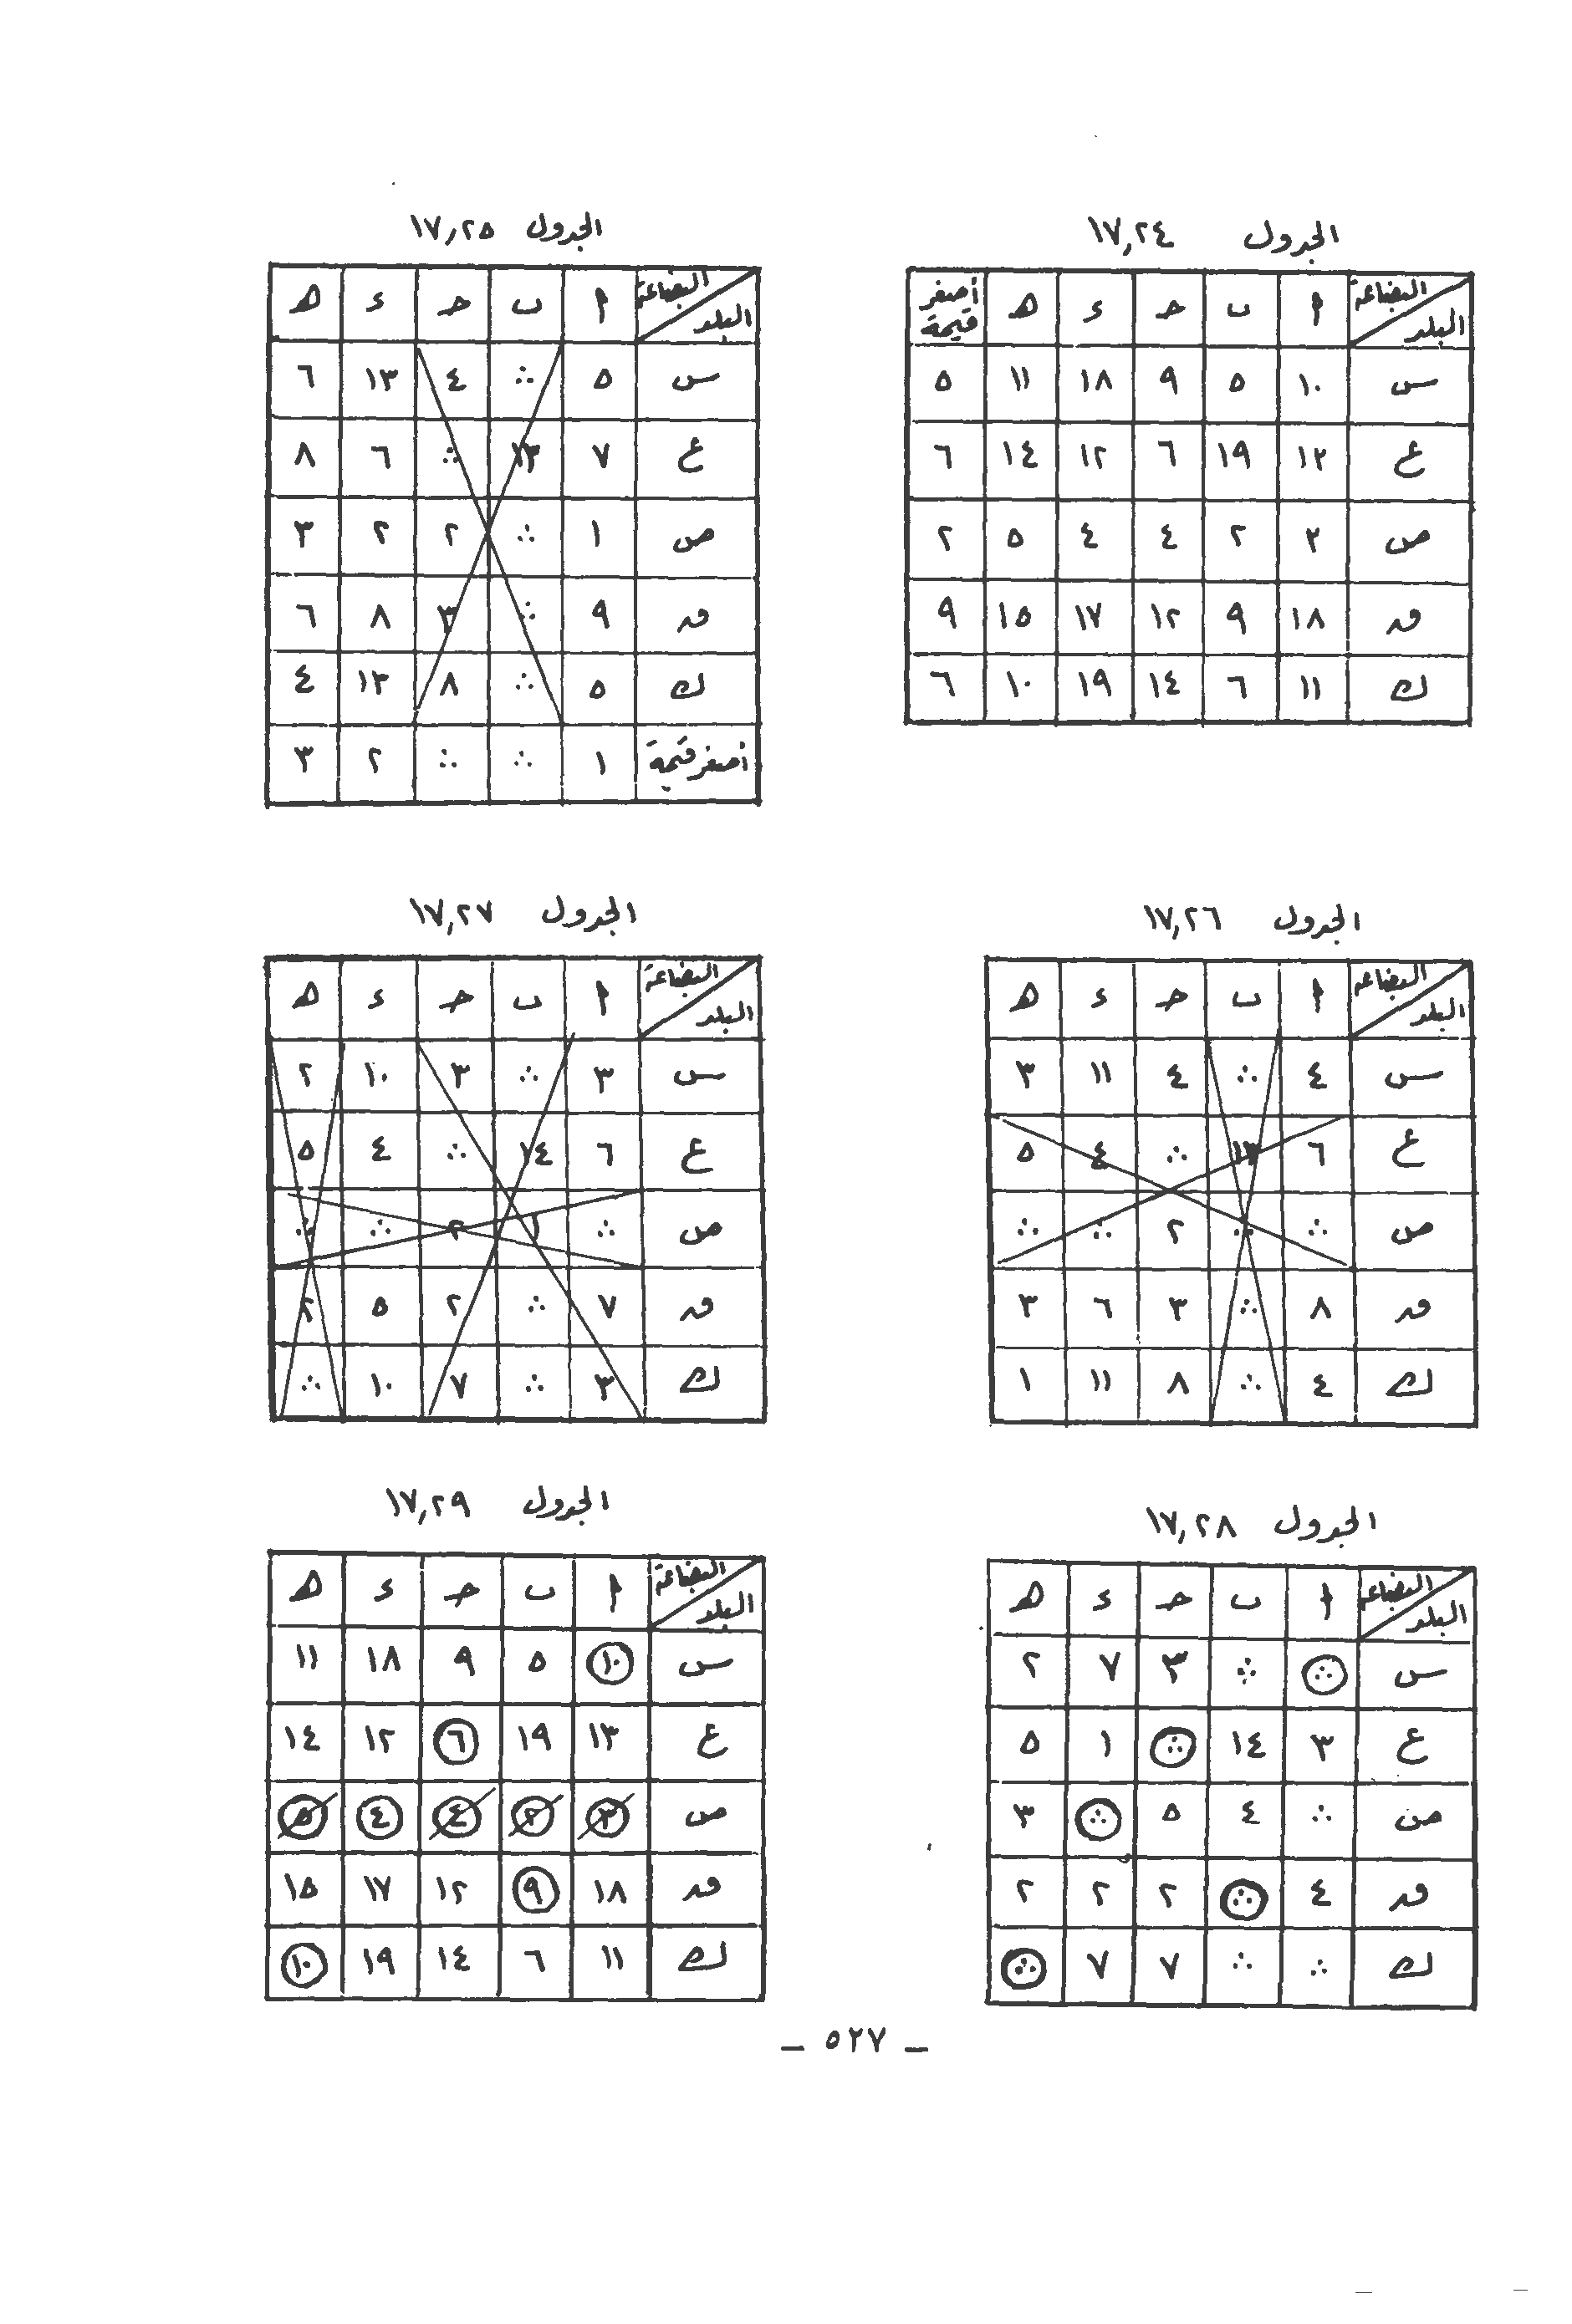 الجدول ١٧,٢٤
البضاعة
البلد ا ب حـ ء هـ أصغر قيمة
س ١٠ ٥ ٩ ١٨ ١١ ٥
ع ١٣ ١٩ ٦ ١٢ ١٤ ٦
ص ٣ ٢ ٤ ٤ ٥ ٢
فـ ١٨ ٩ ١٢ ١٧ ١٥ ٩
ك ١١ ٦ ١٤ ١٩ ١٠ ٦
الجدول ١٧,٢٥
البضاعة
البلد ا ب حـ ء هـ
س ٥ ∴ ٤ ١٣ ٦
ع ٧ ١٣ ∴ ٦ ٨
ص ١ ∴ ٢ ٢ ٣
فـ ٩ ∴ ٣ ٨ ٦
ك ٥ ∴ ٨ ١٣ ٤
أصغر قيمة ١ ∴ ∴ ٢ ٣
الجدول ١٧,٢٦
البضاعة
البلد ا ب حـ ء هـ
س ٤ ∴ ٤ ١١ ٣
ع ٦ ١٣ ∴ ٤ ٥
ص ∴ ∴ ٢ ∴ ∴
فـ ٨ ∴ ٣ ٦ ٣
ك ٤ ∴ ٨ ١١ ١
الجدول ١٧,٢٧
البضاعة
البلد ا ب حـ ء هـ
س ٣ ∴ ٣ ١٠ ٢
ع ٦ ١٤ ∴ ٤ ٥
ص ∴ ١ ٢ ∴ ∴
فـ ٧ ∴ ٢ ٥ ٢
ك ٣ ∴ ٧ ١٠ ∴
الجدول ١٧,٢٨
البضاعة
البلد ا ب حـ ء هـ
س ∴ ∴ ٣ ٧ ٢
ع ٣ ١٤ ∴ ١ ٥
ص ∴ ٤ ٥ ∴ ٣
فـ ٤ ∴ ٢ ٢ ٢
ك ∴ ∴ ٧ ٧ ∴
الجدول ١٧,٢٩
البضاعة
البلد ا ب حـ ء هـ
س ١٠ ٥ ٩ ١٨ ١١
ع ١٣ ١٩ ٦ ١٢ ١٤
ص ٣ ٢ ٤ ٤ ٥
فـ ١٨ ٩ ١٢ ١٧ ١٥
ك ١١ ٦ ١٤ ١٩ ١٠
_ ٥٢٧ _